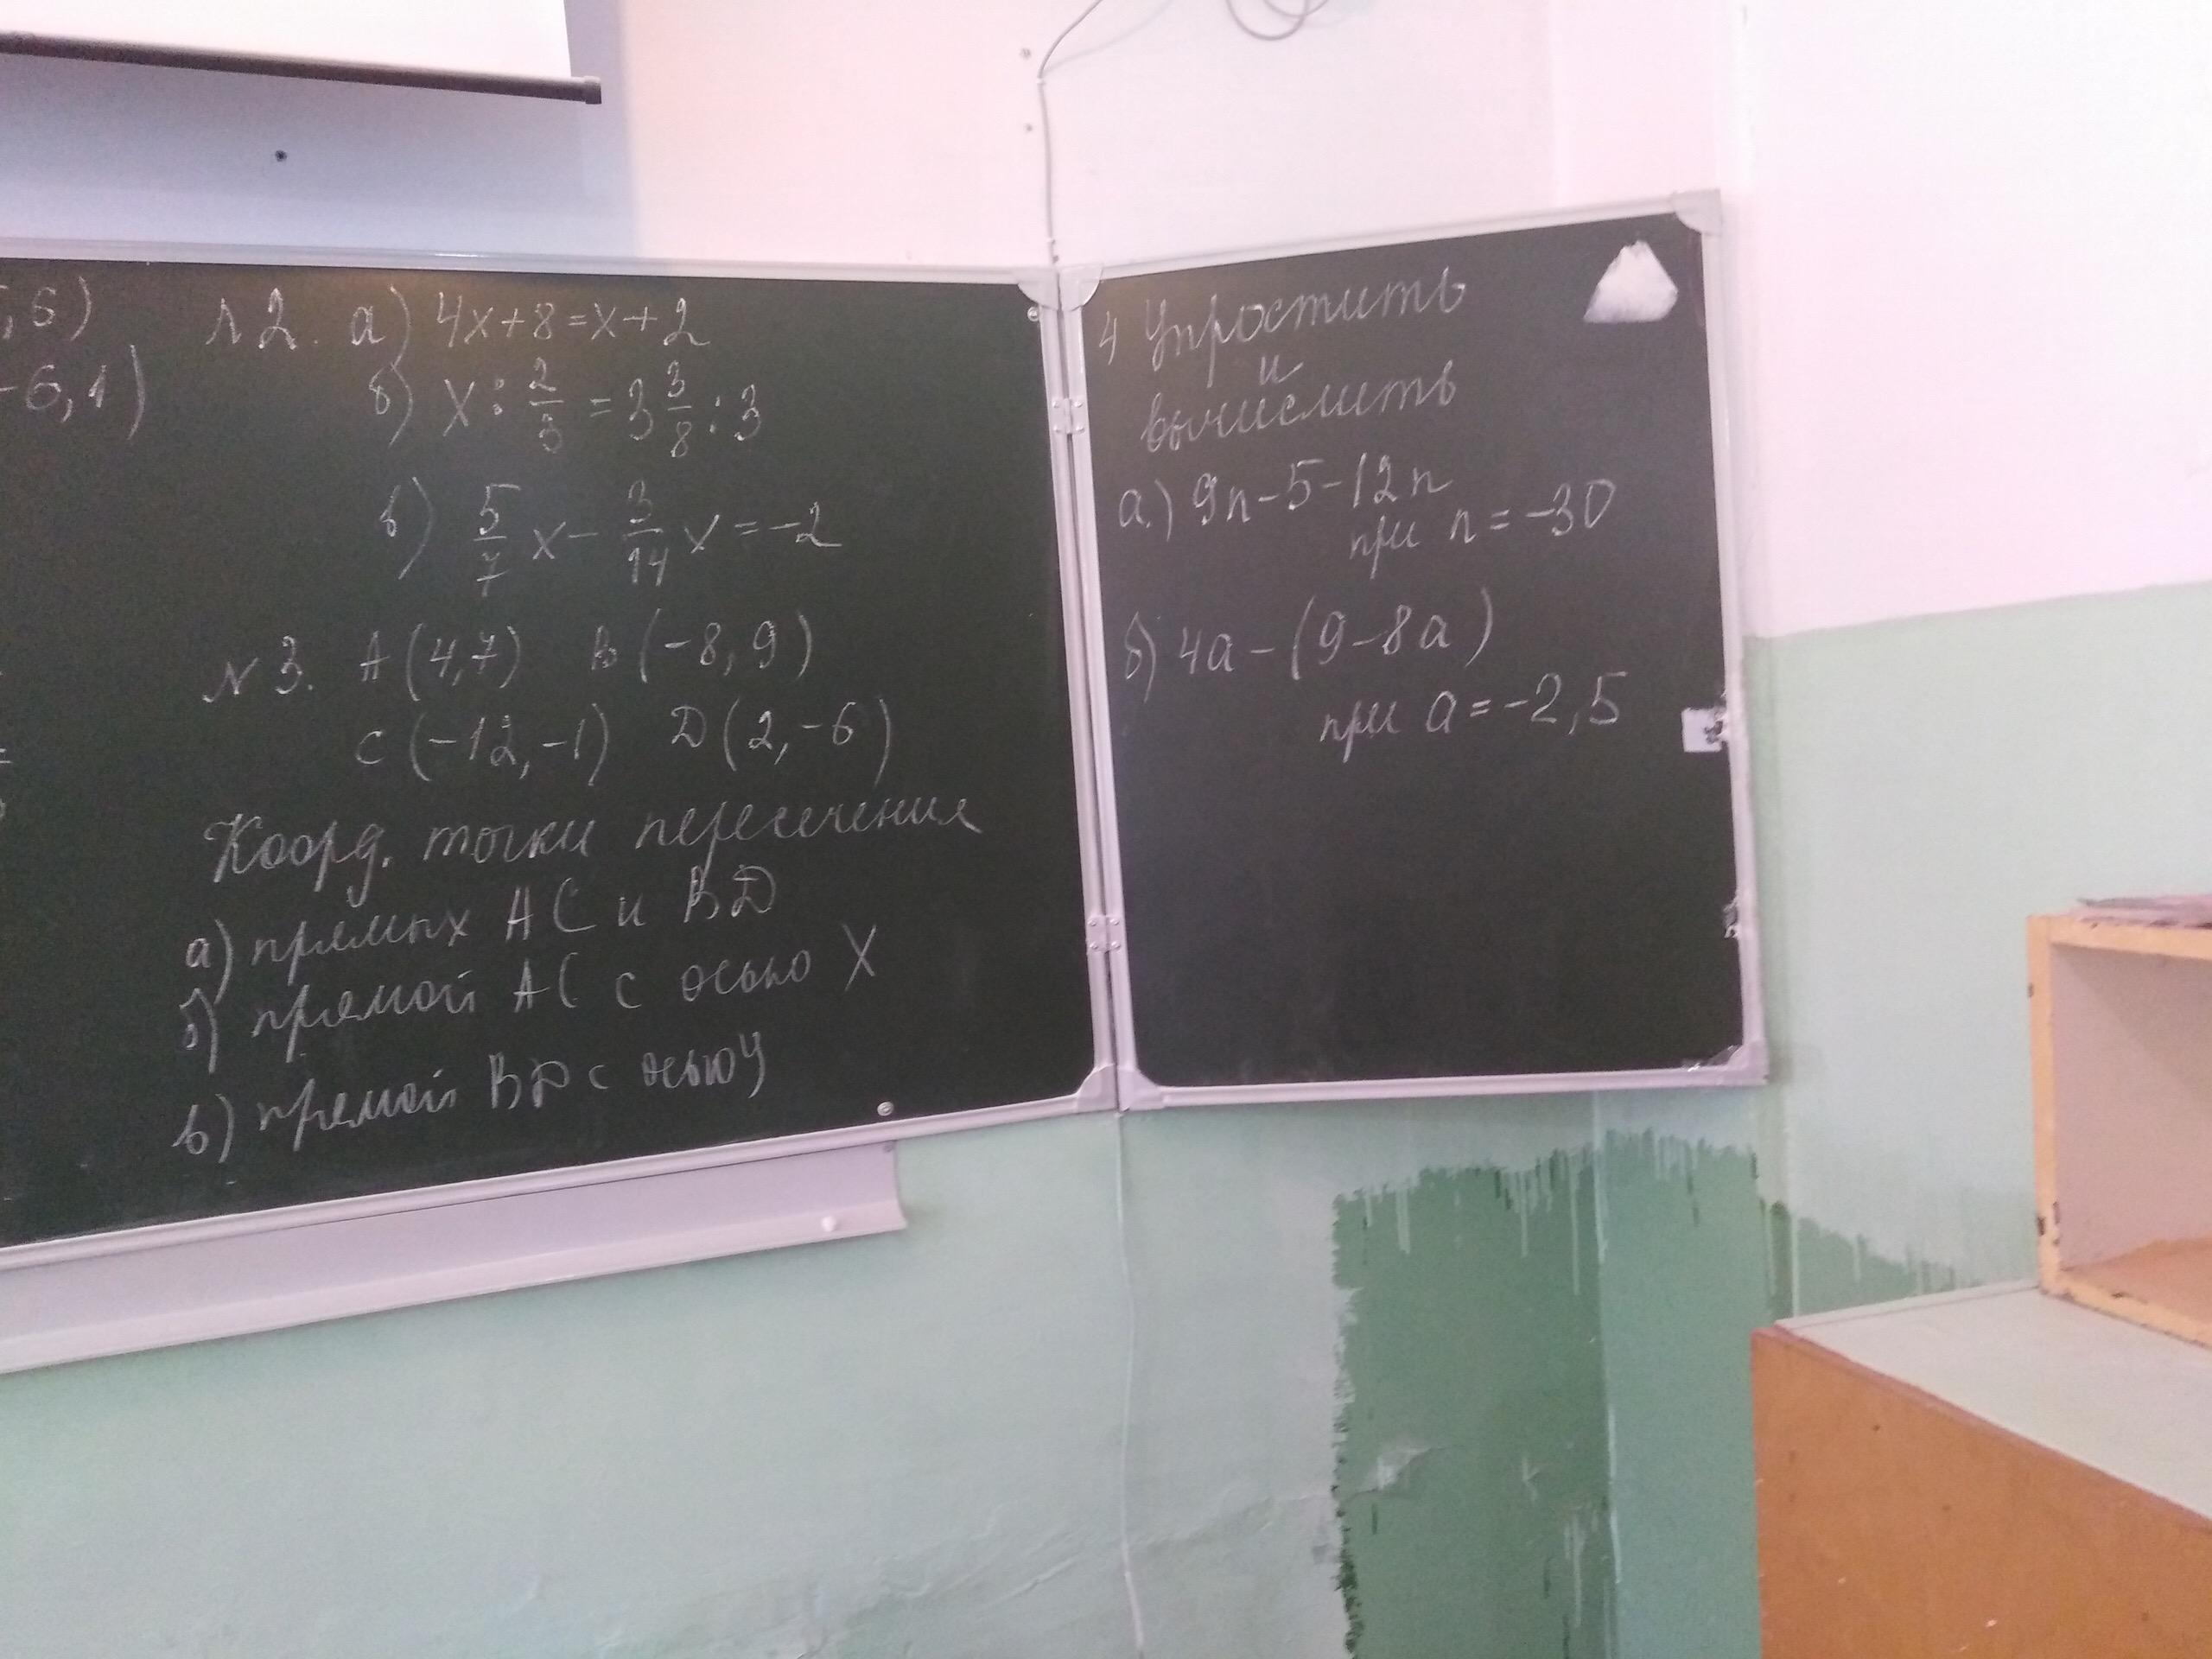 , 6)
-6, 1)
№2. а) 4x+8=x+2
б) x : 2/3 = 3 3/8 : 3
в) 5/7 x - 3/14 x = -2
№3. A(4,7) B(-8, 9)
C(-12, -1) D(2, -6)
Коорд. точки пересечения
а) прямых AC и BD
б) прямой AC с осью X
в) прямой BD с осью У
4 Упростить
и
вычислить
а) 9n-5-12n
при n=-30
б) 4a-(9-8a)
при a=-2,5